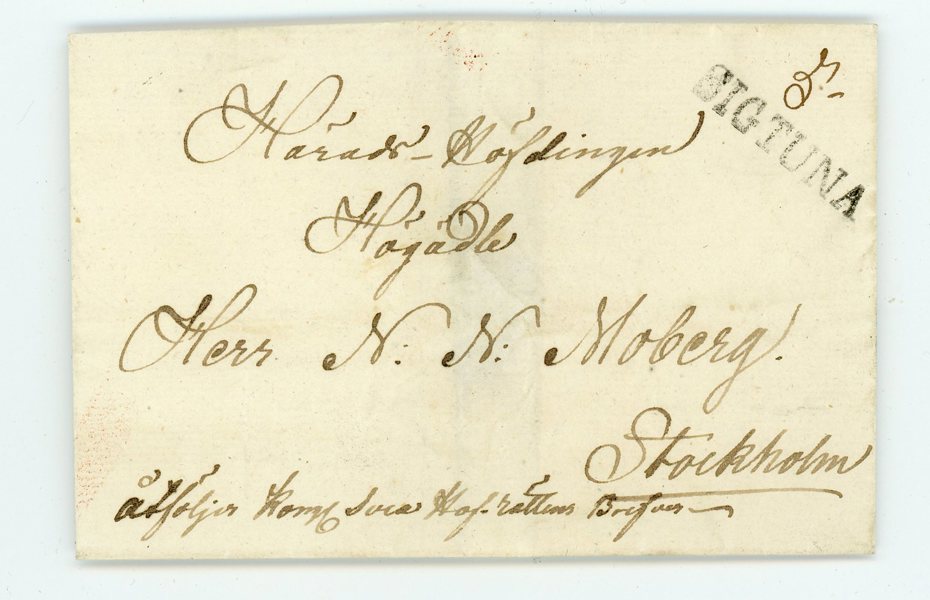 SIGTUNA
Härads-Höfdingen
Högädle
Herr N: N: Moberg.
Stockholm
åtföljer Kongl Svea Hof-rättens Brefver